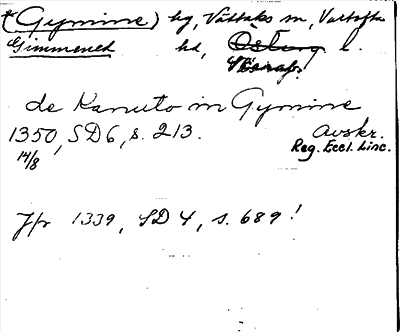 *(Gymine) hg, Valtaks sn, Vartofta
Gimmened hd, Östurg l.
Skarab.
de Kanuto in Gymine
1350, SD 6, s. 213. Avskr.
14/8 Reg. Eccl. Linc.
Jfr 1339, SD 4, s. 689!